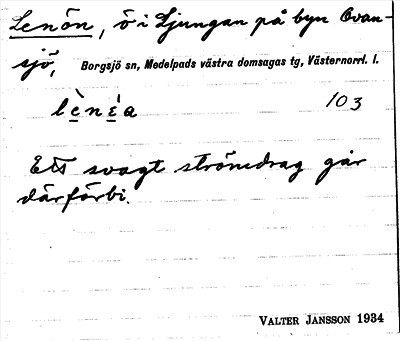 Lenön, ö i Ljungan på byn Ovan-
sjö, Borgsjö sn, Medelpads västra domsagas tg, Västernorrl. l.
lènéa 103
Ett svagt strömdrag går
därförbi.
VALTER JANSSON 1934